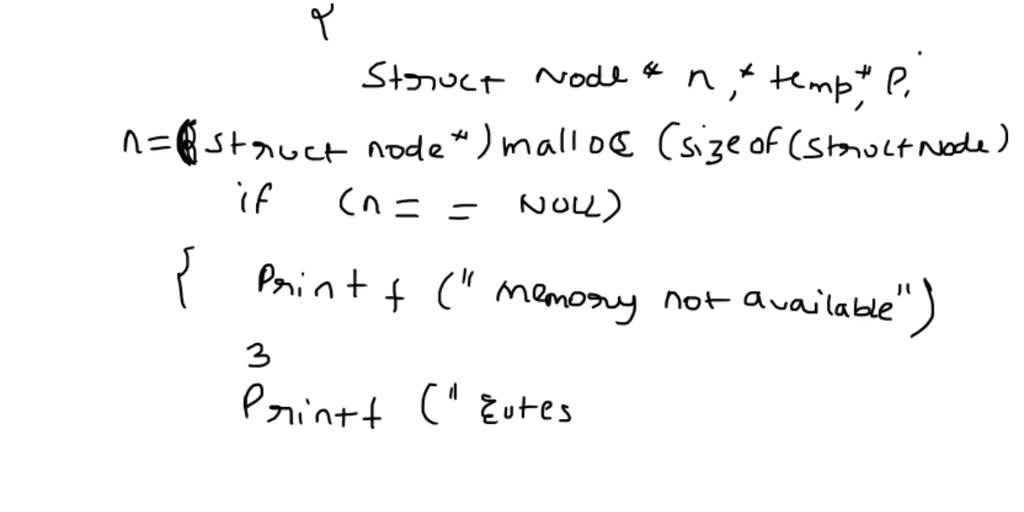 {
struct Node * n, * temp, * P;
n=(struct node*) malloc (sizeof(struct Node)
if (n = = NULL)
{ Printf (" memory not available")
}
Printf ("